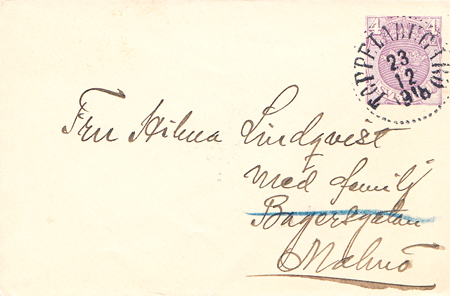 TOPPELADUGÅRD
23
12
Fru Hilma Lindqvest
med familj
Bagersgatan
Malmö